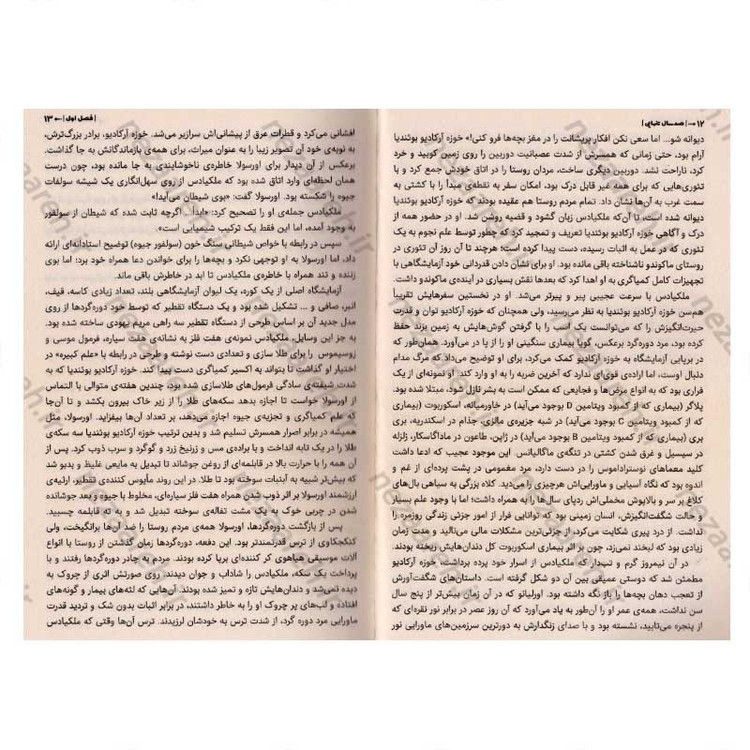 ۱۲ | صد سال تنهایی |
دیوانه شو... اما سعی نکن افکار پریشانت را در مغز بچه‌ها فرو کنی!» خوزه آرکادیو بوئندیا
آرام بود، حتی زمانی که همسرش از شدت عصبانیت دوربین را روی زمین کوبید و خرد
کرد، ناراحت نشد. دوربین دیگری ساخت، مردان روستا را در اتاق خودش جمع کرد و با
تئوری‌هایی که برای همه غیر قابل درک بود، امکان سفر به نقطه‌ی مبدأ را با کشتی به
سمت غرب به آن‌ها نشان داد. تمام مردم روستا هم عقیده بودند که خوزه آرکادیو بوئندیا
دیوانه شده است، تا آن‌که ملکیادس زبان گشود و قضیه روشن شد. او در حضور همه از
درک و آگاهی خوزه آرکادیو بوئندیا تعریف و تمجید کرد که چطور توسط علم نجوم به یک
تئوری که در عمل به اثبات رسیده، دست پیدا کرده است؛ هرچند تا آن روز آن تئوری در
روستای ماکوندو ناشناخته باقی مانده بود. او برای نشان دادن قدردانی خود آزمایشگاهی با
تجهیزات کامل کمیاگری به او اهدا کرد که بعدها نقش بسیاری در آینده‌ی ماکوندو داشت.
ملکیادس با سرعت عجیبی پیر و پیرتر می‌شد. او در نخستین سفرهایش تقریباً
هم‌سن خوزه آرکادیو بوئندیا به نظر می‌رسید، ولی همچنان که خوزه آرکادیو توان و قدرت
حیرت‌انگیزش را که می‌توانست یک اسب را با گرفتن گوش‌هایش به زمین بزند حفظ
کرده بود، مرد دوره‌گرد برعکس، گویا بیماری سنگینی او را از پا در می‌آورد. همان‌طور که
در برپایی آزمایشگاه به خوزه آرکادیو کمک می‌کرد، برای او توضیح می‌داد که مرگ مدام
دنبال اوست، اما اراده‌ی قوی‌ای ندارد که آخرین ضربه را به او وارد کند. او نمونه‌ای از یک
فراری بود که به انواع مرض‌ها و فجایعی که ممکن است به بشر نازل شود، مبتلا شده بود.
پلاگر (بیماری که از کمبود ویتامین D بوجود می‌آید) در خاورمیانه، اسکوربوت (بیماری
که از کمبود ویتامین C بوجود می‌آید) در شبه جزیره‌ی مالزی، جذام در اسکندریه، بری
بری (بیماری که از کمبود ویتامین B بوجود می‌آید) در ژاپن، طاعون در ماداگاسکار، زلزله
در سیسیل و غرق شدن کشتی در تنگه‌ی ماگالیانس. این موجود عجیب که ادعا داشت
کلید معماهای نوستراداموس را در دست دارد، مرد مغمومی در پشت پرده‌ای از غم و
اندوه بود که نگاه آسیایی و ماورایی‌اش هرچیزی را می‌دید. کلاه بزرگی به سیاهی بال‌های
کلاغ بر سر و بالاپوش مخملی‌اش ردپای سال‌ها را به همراه داشت؛ اما با وجود علم بسیار
و حالت شگفت‌انگیزش، انسان زمینی بود که توانایی فرار از امور جزئی زندگی روزمره را
نداشت. از درد پیری شکایت می‌کرد، از جزئی‌ترین مشکلات مالی می‌نالید و مدت زمان
زیادی بود که لبخند نمی‌زد، چون بر اثر بیماری اسکوربوت کل دندان‌هایش ریخته بودند.
در آن نیمروز گرم و تب‌دار که ملکیادس از اسرار خود پرده برداشت، خوزه آرکادیو
مطمئن شد که دوستی عمیقی بین آن دو شکل گرفته است. داستان‌های شگفت‌آورش
از تعجب دهان بچه‌ها را باز نگه داشته بود. اورلیانو که در آن زمان بیش‌تر از پنج سال
سن نداشت، همه‌ی عمر او را آن‌طور به یاد می‌آورد که آن روز عصر در برابر نور نقره‌ای که
از پنجره می‌تابید، نشسته بود و با صدای زنگدارش به دورترین سرزمین‌های ماورایی نور
| فصل اول | ۱۳
افشانی می‌کرد و قطرات عرق از پیشانی‌اش سرازیر می‌شد. خوزه آرکادیو، برادر بزرگ‌ترش،
به نوبه‌ی خود آن تصویر زیبا را به عنوان میراث، برای همه‌ی بازماندگانش به جا گذاشت.
برعکس از آن دیدار برای اورسولا خاطره‌ی ناخوشایندی به جا مانده بود، چون درست
همان لحظه‌ای وارد اتاق شده بود که ملکیادس از روی سهل‌انگاری یک شیشه سولفات
جیوه را شکسته بود. اورسولا گفت: «بوی شیطان می‌آید!»
ملکیادس جمله‌ی او را تصحیح کرد: «ابداً... اگرچه ثابت شده که شیطان از سولفور
به وجود آمده، اما این فقط یک ترکیب شیمیایی است.»
سپس در رابطه با خواص شیطانی سنگ خون (سولفور جیوه) توضیح استادانه‌ای ارائه
داد، اما اورسولا به او توجهی نکرد و بچه‌ها را برای خواندن دعا همراه خود برد؛ اما بوی
زننده و تند همراه با خاطره‌ی ملکیادس تا ابد در خاطرش باقی ماند.
آزمایشگاه اصلی از یک کوره، یک لیوان آزمایشگاهی بلند، تعداد زیادی کاسه، قیف،
انبر، صافی و ... تشکیل شده بود و یک دستگاه تقطیر که توسط خود دوره‌گردها از روی
مدل جدید آن بر اساس طرحی از دستگاه تقطیر سه راهی مریم یهودی ساخته شده بود.
به جز این وسایل، ملکیادس نمونه‌ی هفت فلز به نشانه‌ی هفت سیاره، فرمول موسی و
زوسیموس را برای طلا سازی و تعدادی دست نوشته و طرحی در رابطه با «علم کبیره» در
اختیار او گذاشت تا بتواند به اکسیر کمیاگری دست پیدا کند. خوزه آرکادیو بوئندیا که به
شدت شیفته‌ی سادگی فرمول‌های طلاسازی شده بود، چندین هفته‌ی متوالی با التماس
از اورسولا خواست تا اجازه بدهد سکه‌های طلا را از زیر خاک بیرون بکشد و تا آن‌جا
که علم کمیاگری و تجزیه‌ی جیوه اجازه می‌دهد، بر تعداد آن‌ها بیفزاید. اورسولا، مثل
همیشه در برابر اصرار همسرش تسلیم شد و بدین ترتیب خوزه آرکادیو بوئندیا سه سکه‌ی
طلا را در یک تابه انداخت و با براده‌ی مس و زرنیخ زرد و گوگرد و سرب ذوب کرد. پس
آن همه را با حرارت بالا در قابلمه‌ای از روغن جوشاند تا تبدیل به مایعی غلیظ و بدبو شد
که بیش‌تر شبیه به آبنبات سوخته بود تا طلا. در این روند مأیوس کننده‌ی تقطیر، ارثیه‌ی
ارزشمند اورسولا بر اثر ذوب شدن به همراه هفت فلز سیاره‌ای، مخلوط با جیوه و بعد جوشانده
شدن در چربی خوک به یک مشت تفاله‌ی سوخته تبدیل شد و به ته قابلمه چسبید.
پس از بازگشت دوره‌گردها، اورسولا همه‌ی مردم روستا را ضد آن‌ها برانگیخت، ولی
کنجکاوی از ترس قدرتمندتر بود. این دفعه، دوره‌گردها زمان گذشتن از روستا با انواع
آلات موسیقی هیاهوی کر کننده‌ای برپا کرده بودند. مردم به چادر دوره‌گردها رفتند و با
پرداخت یک سکه، ملکیادس را شاداب و جوان دیدند. روی صورتش اثری از چروک به
دیده نمی‌شد و دندان‌هایش تازه و تمیز شده بودند. آن‌هایی که لثه‌های بیمار و گونه‌های
افتاده و لب‌های پر چروک او را به خاطر داشتند، در برابر اثبات بدون شک و تردید قدرت
ماورایی مرد دوره گرد، از شدت ترس به خودشان لرزیدند. ترس آن‌ها وقتی که ملکیادس